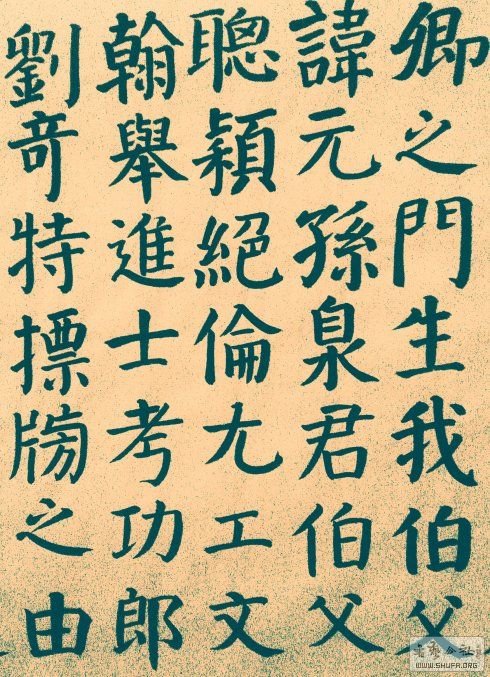 卿之門生我伯父
諱元孫泉君伯父
聰穎絕倫尤工文
翰舉進士考功郎
劉竒特摽牓之由
書藝公社
WWW.SHUFA.ORG